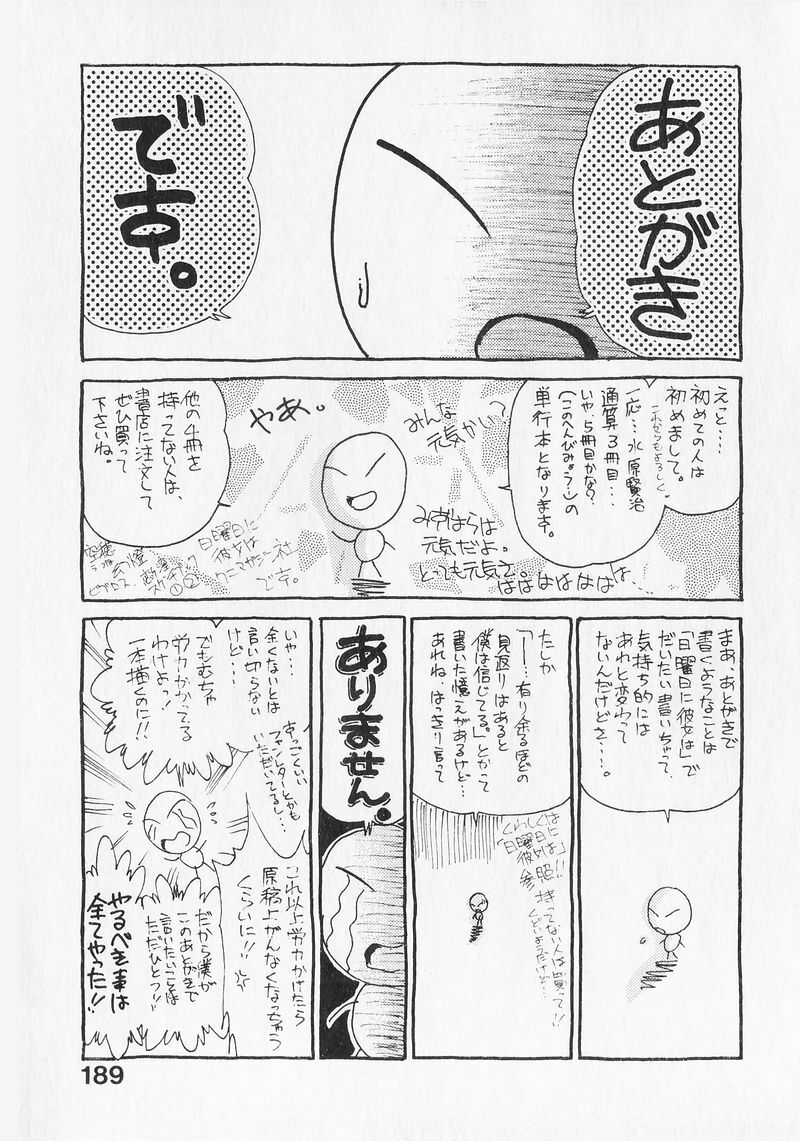 あとがき
です。
えっと…
初めての人は
初めまして。
これからもよろしく。
一応…水原賢治
通算3冊目…
いや、5冊目かな？
(このへんびみょう…)の
単行本となります。
みんな
元気かい？
やあ。
みずはらは
元気だよ。
とっても元気さ
はははははは…
他の4冊を
持ってない人は、
書店に注文して
ぜひ買って
下さいね。
日曜日に
彼女は
ワニマガジン社
です。
まあ、あとがきで
書くようなことは
「日曜日に彼女は」で
だいたい書いちゃって、
気持ち的には
あれと変わって
ないんだけどさ…。
たしか
「…有り余るほどの
見返りはあると
僕は信じてる。」とかって
書いた憶えがあるけど…
あれね、はっきり言って
くわしくは
「日曜日には
彼女は」
参照!!
持ってない人は買って!!
くどいようだけど…
ありません。
いや…
全くないとは
言い切らない
けど…
すっごくいい
ファンレターとかも
いただいてるし…
でもむちゃ
労力かかってる
わけよっ！
一本描くのに!!
これ以上労力かけたら
原稿上がんなくなっちゃう
くらいに!!
だから僕が
このあとがきで
言いたいことは
ただひとつ!!
やるべき事は
全てやった!!
189